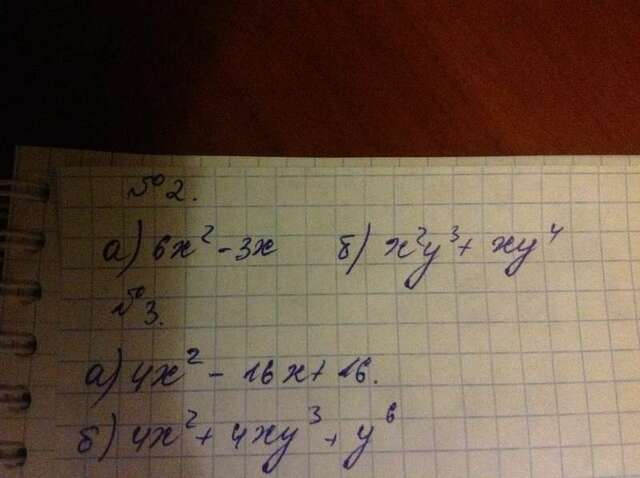 № 2.
а) 6x² - 3x б) x²y³ + xy⁴
№ 3.
а) 4x² - 16x + 16.
б) 4x² + 4xy³ + y⁶